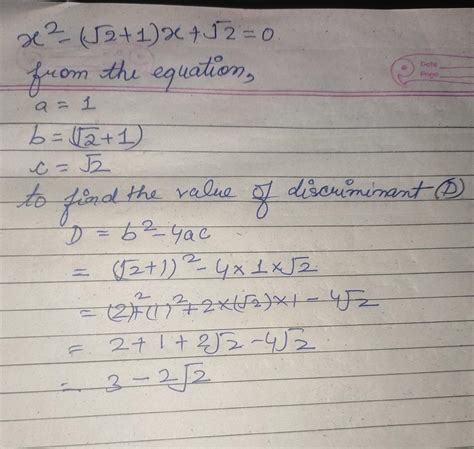 x² - (√2+1)x + √2 = 0
from the equation,
Date
Page
a = 1
b = (√2+1)
c = √2
to find the value of discriminant (D)
D = b² - 4ac
= (√2+1))² - 4×1×√2
= (2)²+(1)²+2×(√2)×1 - 4√2
= 2+1+2√2-4√2
= 3-2√2